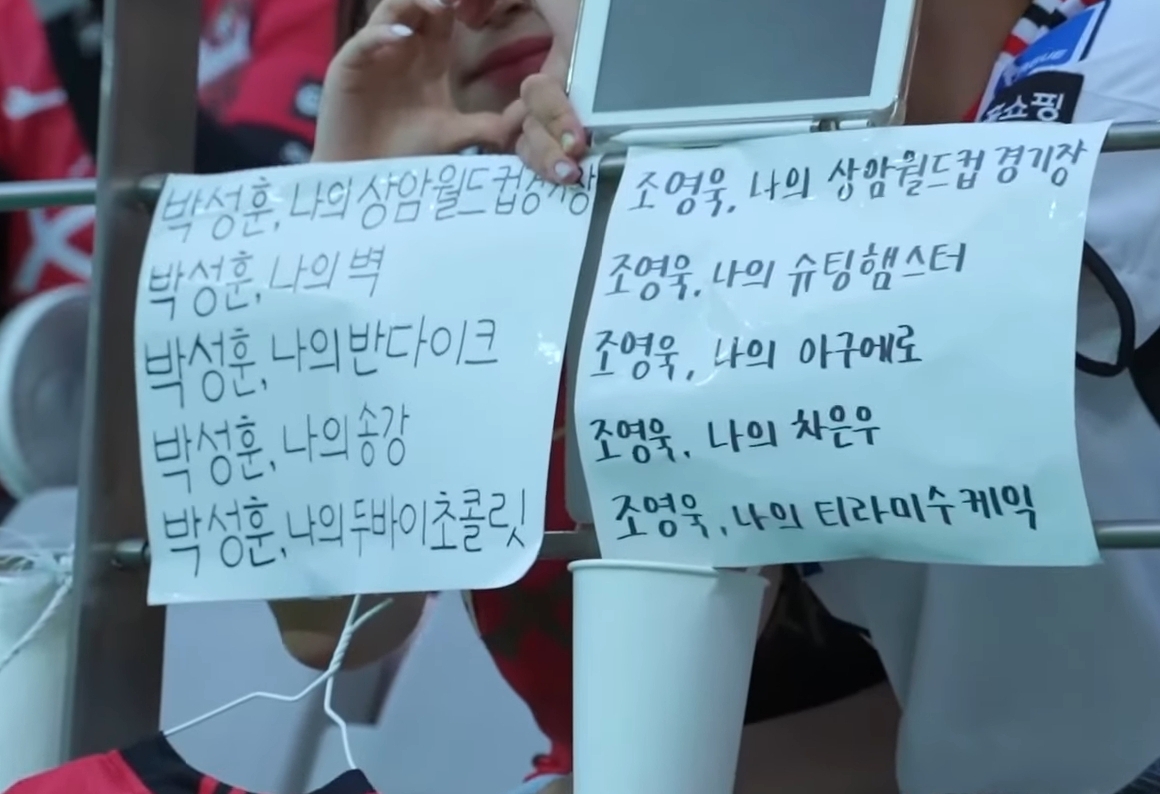 박성훈, 나의 상암월드컵경기장
박성훈, 나의 벽
박성훈, 나의 반다이크
박성훈, 나의 송강
박성훈, 나의 두바이초콜릿
조영욱, 나의 상암월드컵 경기장
조영욱, 나의 슈팅햄스터
조영욱, 나의 아구에로
조영욱, 나의 차은우
조영욱, 나의 티라미수케익
쇼핑